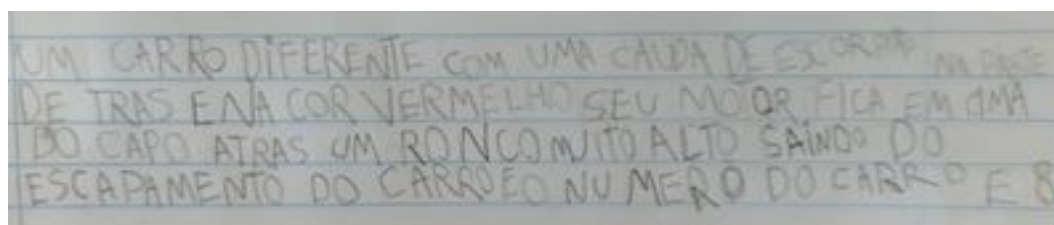 UM CARRO DIFERENTE COM UMA CAUDA DE ESCORPIÃO NA PARTE
DE TRAS E NA COR VERMELHO SEU MOTOR FICA EM CIMA
DO CAPO ATRAS UM RONCO MUITO ALTO SAINDO DO
ESCAPAMENTO DO CARRO E O NUMERO DO CARRO E 8